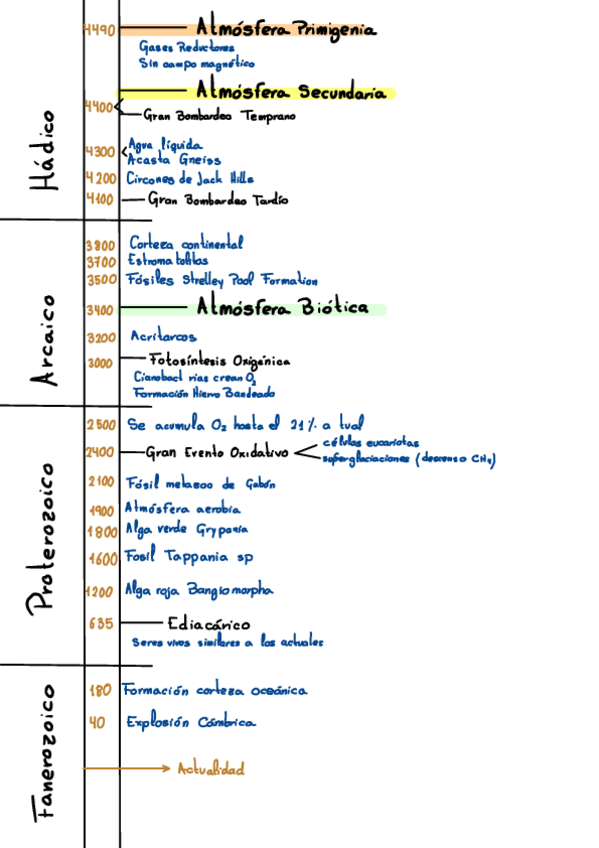 Hádico
4490 Atmósfera Primigenia
Gases Reductores
Sin campo magnético
Atmósfera Secundaria
4400
Gran Bombardeo Temprano
4300 Agua líquida
Acasta Gneiss
4200 Circones de Jack Hills
4100 Gran Bombardeo Tardío
Arcaico
3800 Corteza continental
3700 Estromatolitos
3500 Fósiles Strelley Pool Formation
3400 Atmósfera Biótica
3200 Acritarcos
3000 Fotosíntesis Oxigénica
Cianobact rias crean O₂
Formación Hierro Bandeado
Proterozoico
2500 Se acumula O₂ hasta el 21% a tual
2400 Gran Evento Oxidativo
células eucariotas
superglaciaciones (descenso CH₄)
2100 Fósil metazoo de Gabón
1900 Atmósfera aerobia
1800 Alga verde Grypania
1600 Fosil Tappania sp
1200 Alga roja Bangiomorpha
635 Ediacárico
Seres vivos similares a los actuales
Fanerozoico
180 Formación corteza oceánica
40 Explosión Cámbrica
Actualidad